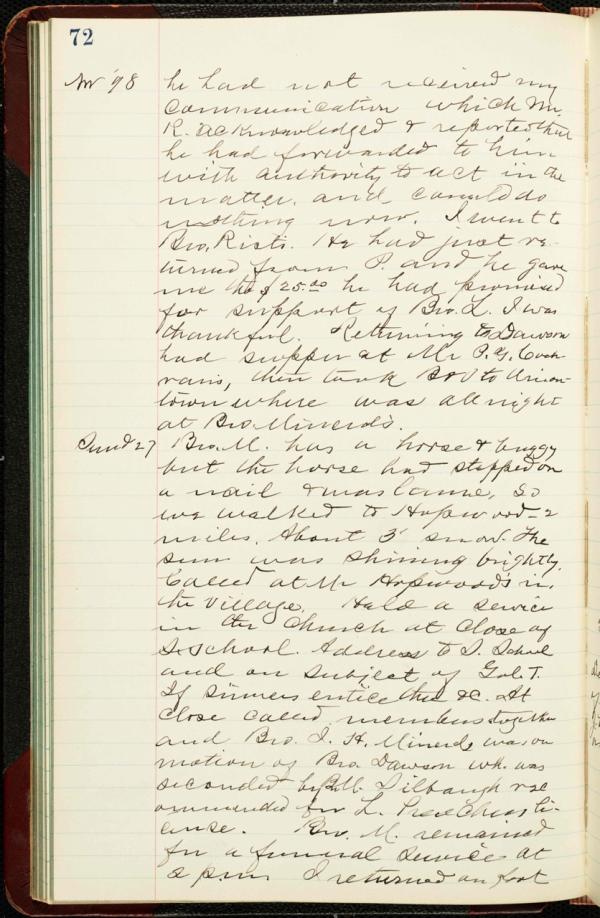 72
Nov '98 he had not received my
communication which Mr.
R. acknowledged & reported that
he had forwarded to him
with authority to act in the
matter, and could do
nothing now. I went to
Bro. Rists. He had just re-
turned from P. and he gave
me the $25.00 he had promised
for support of Bro. L. I was
thankful. Returning to Dawson
had supper at Mr P. G. Coch-
rans, then took B&O to Union-
town where was all night
at Bro Minerd's.
Sund 27 Bro. M. has a horse & buggy
but the horse had stepped on
a nail & was lame, so
we walked to Hopwood 2
miles. About 3" snow. The
sun was shining brightly.
Called at Mr Hopwood's in
the village. Held a service
in the Church at close of
S. school. Address to S. School
and on subject of
If sinners entice thee &c. At
close called members together
and Bro. I. H. Minerds was on
motion of Bro. Dawson wh. was
seconded by M. Silbaugh rec
ommended for L. Preachers li-
cense. Bro. M. remained
for a funeral service at
2 p.m. I returned on foot